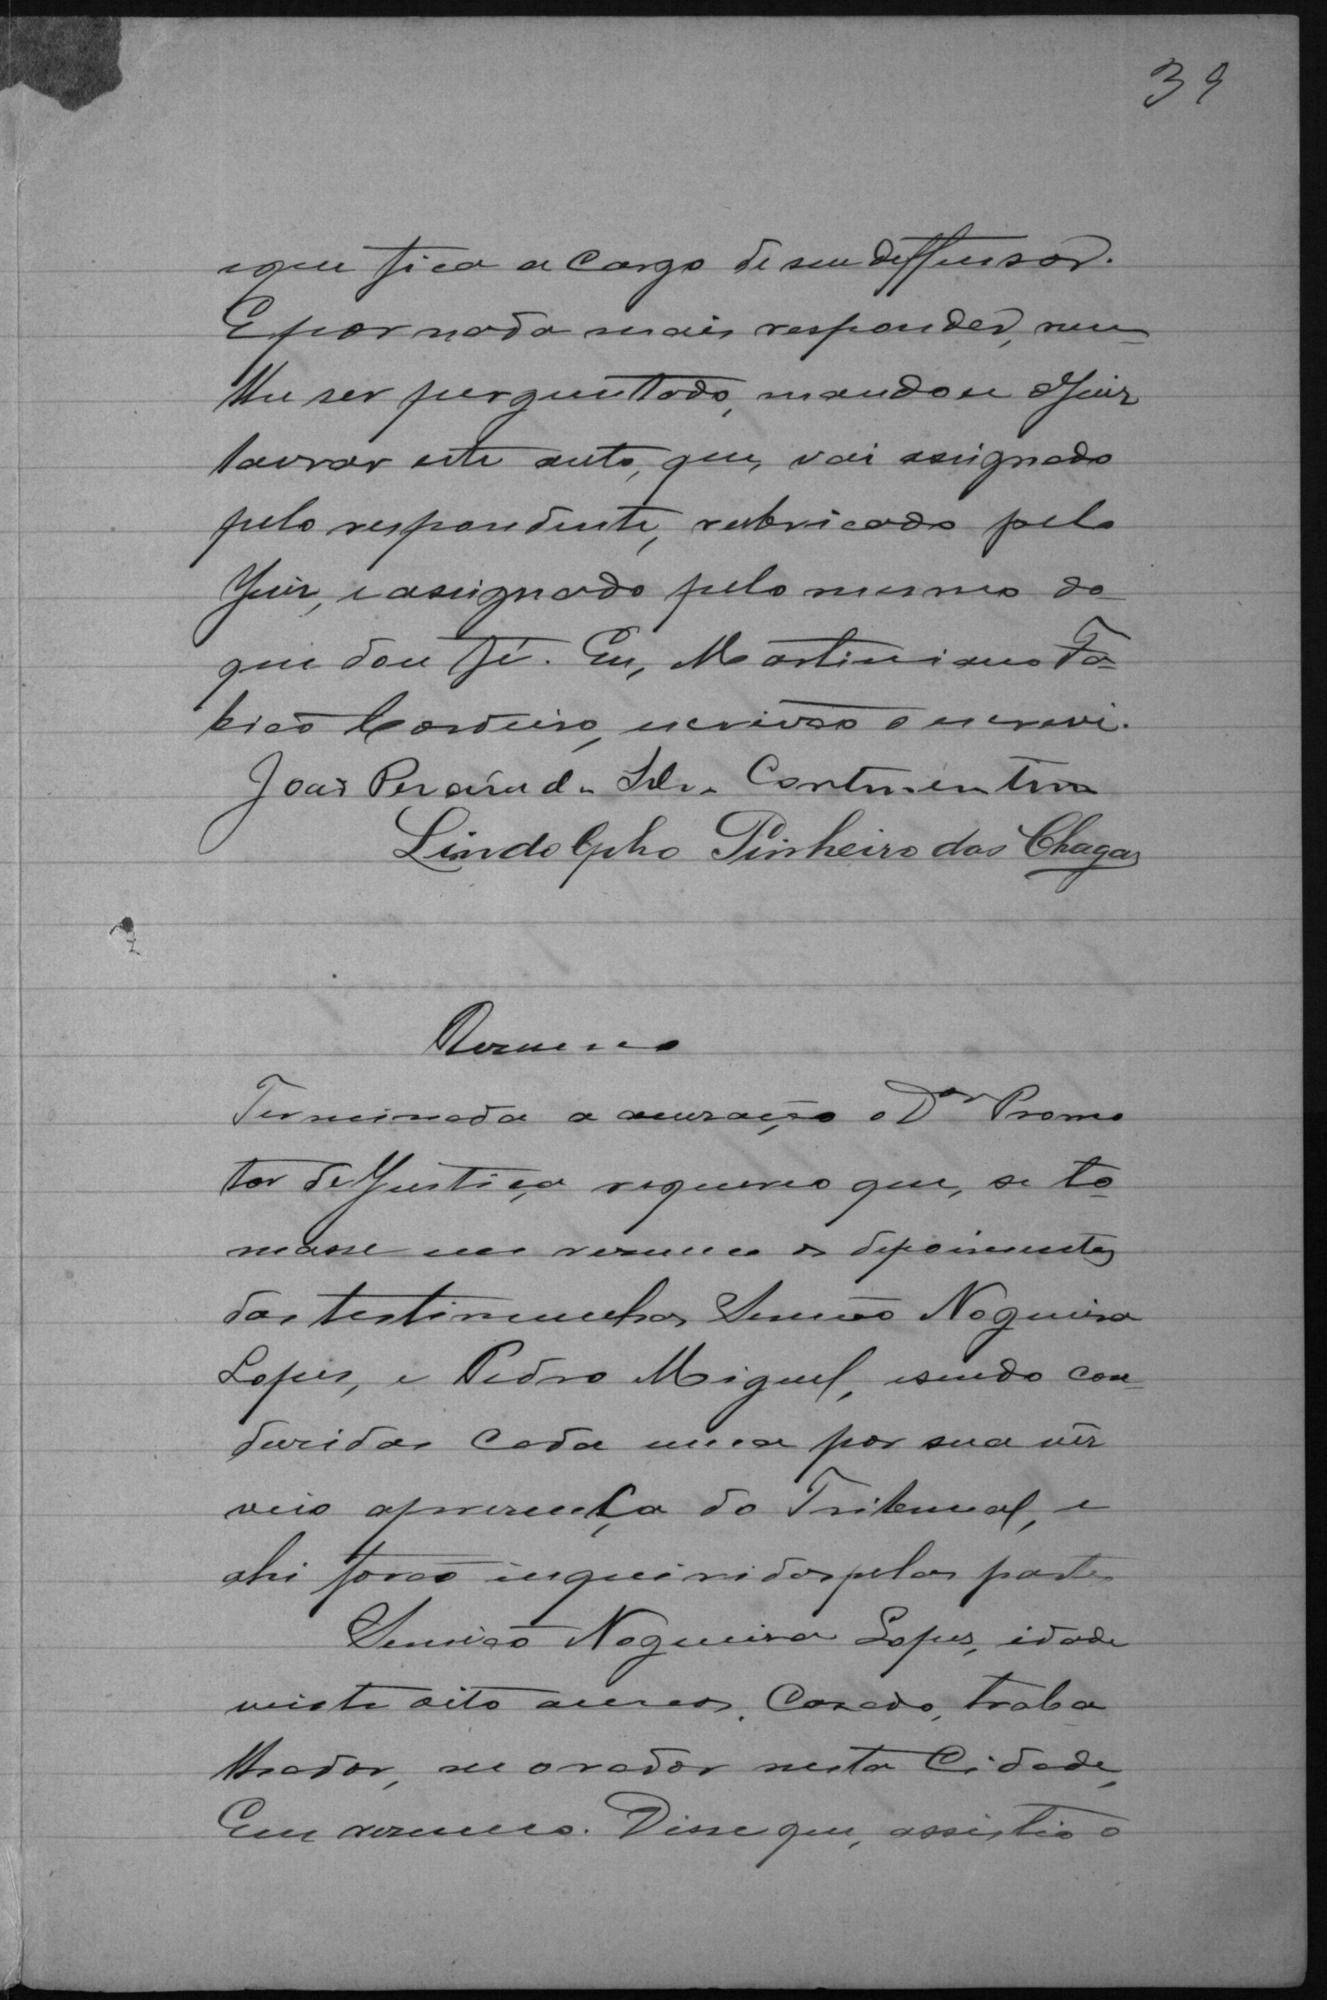 39
eque fica a cargo de seu deffensor.
E por nada mais responder, nem
lhe ser perguntado, mandou o Juiz
lavrar este auto, que, vai assignado
pelo respondente, rubricado pelo
Juiz, e assignado pelo mesmo do
que dou fé. Eu, Martiniano Fa-
bião Cordeiro, escrivão o escrevi.
João Pereira da Silva
Lindolpho Pinheiro das Chagas
Resumo
Terminada a accusação o Dor Promo
tor de Justiça requereo que, se to-
masse em resumo os depoimentos
das testimunhas Simião Nogueira
Lopes, e Pedro Miguel, esendo con-
duzidas cada uma por sua vêz
veio apresença do Tribunal, e
ahi forão inqueiridas pelas partes
Simião Nogueira Lopes, idade
vinte oito annos, Casado, traba
lhador, morador nesta Cidade,
Em resumo. Disse que, assistio o